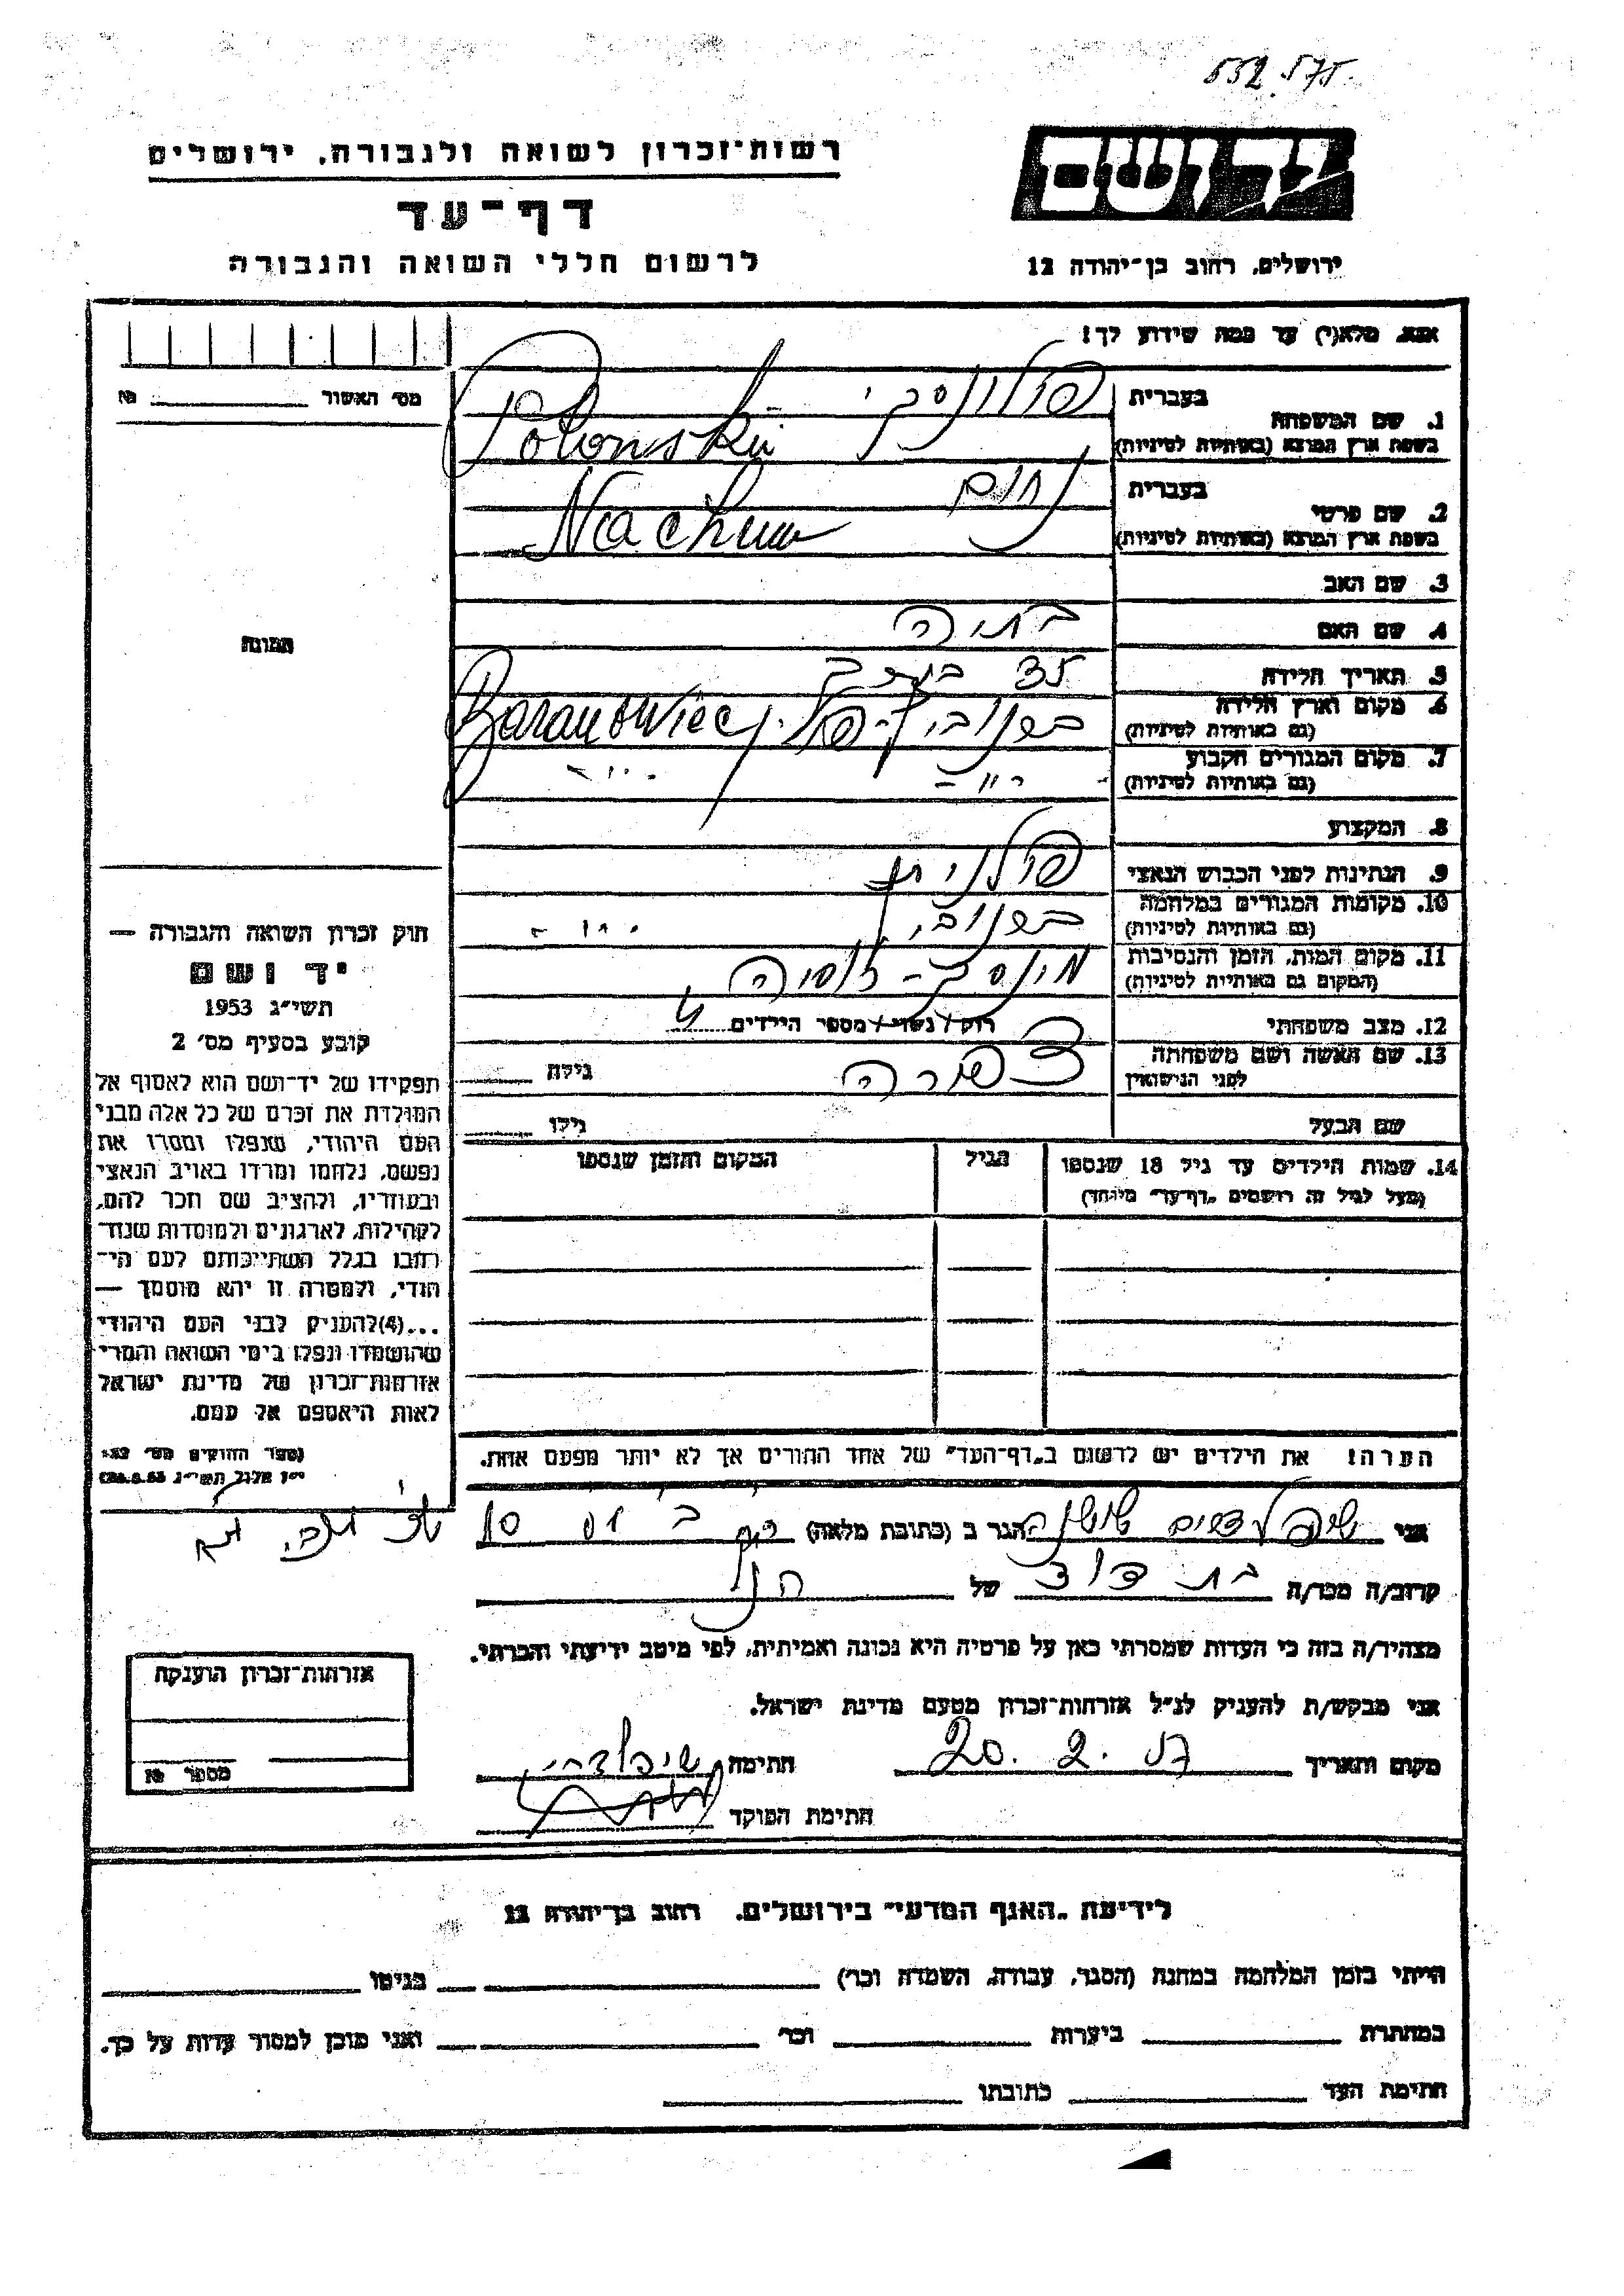 532.575
רשות־זכרון לשואה ולגבורה, ירושלים
דף־עד
לרשום חללי השואה והגבורה
יד ושם
ירושלים, רחוב בן־יהודה 12
אנא, מלא(י) עד כמה שידוע לך!
מס׳ האשור № 
1. שם המשפחה
בעברית פולונסקי
בשפת ארץ המוצא (באותיות לטיניות) Polonski
2. שם פרטי
בעברית נחום
בשפת ארץ המוצא (באותיות לטיניות) Nachum
3. שם האב
4. שם האם בתיה
5. תאריך הלידה 35 בערך
6. מקום וארץ הלידה
(גם באותיות לטיניות) ברנוביץ־פולין Baranowice
7. מקום המגורים הקבוע
(גם באותיות לטיניות) - " - - " -
8. המקצוע
9. הנתינות לפני הכבוש הנאצי פולנית
10. מקומות המגורים במלחמה
(גם באותיות לטיניות) ברנוביץ - " -
11. מקום המות, הזמן והנסיבות
(המקום גם באותיות לטיניות) מינסק - רוסיה
12. מצב משפחתי רוק / נשוי / מספר הילדים
13. שם האשה ושם משפחתה
לפני הנישואין צפורה גילה
שם הבעל גילו
14. שמות הילדים עד גיל 18 שנספו
(מעל לגיל זה רושמים „דף־עד״ מיוחד)
הגיל
המקום והזמן שנספו
הערה! את הילדים יש לרשום ב„דף־העד״ של אחד ההורים אך לא יותר מפעם אחת.
תמונה
חוק זכרון השואה והגבורה —
יד ושם
תשי״ג 1953
קובע בסעיף מס׳ 2
תפקידו של יד־ושם הוא לאסוף אל
המולדת את זכרם של כל אלה מבני
העם היהודי, שנפלו ומסרו את
נפשם, נלחמו ומרדו באויב הנאצי
ובעוזריו, ולהציב שם וזכר להם,
לקהילות, לארגונים ולמוסדות שנח־
רבו בגלל השתייכותם לעם הי־
הודי, ולמטרה זו יהא מוסמך —
...(4)להעניק לבני העם היהודי
שהושמדו ונפלו בימי השואה והמרי
אזרחות־זכרון של מדינת ישראל
לאות היאספם אל עמם.
(ספר החוקים מס׳ 132
י״ז אלול תשי״ג 28.8.53)
אני שושנה הגר ב (כתובת מלאה)
קרוב/ה מכר/ה בת דוד של הנ״ל
מצהיר/ה בזה כי העדות שמסרתי כאן על פרטיה היא נכונה ואמיתית, לפי מיטב ידיעתי והכרתי.
אני מבקש/ת להעניק לנ״ל אזרחות־זכרון מטעם מדינת ישראל.
מקום ותאריך 20. 2. 57 חתימה
חתימת הפוקד
אזרחות־זכרון הוענקה
מספר №
לידיעת „האגף המדעי״ בירושלים, רחוב בן־יהודה 12
הייתי בזמן המלחמה במחנה (הסגר, עבודה, השמדה וכו׳) בגיטו
במחתרת ביערות וכו׳ ואני מוכן למסור עדות על כך.
חתימת העד כתובתו